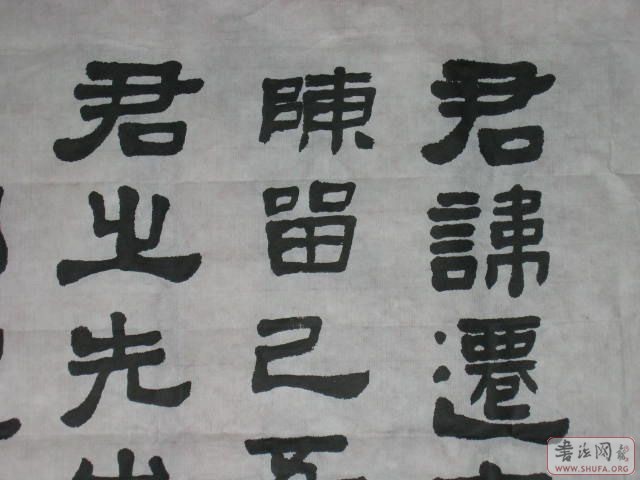 君諱遷
陳留己
君之先
WWW.SHUFA.ORG